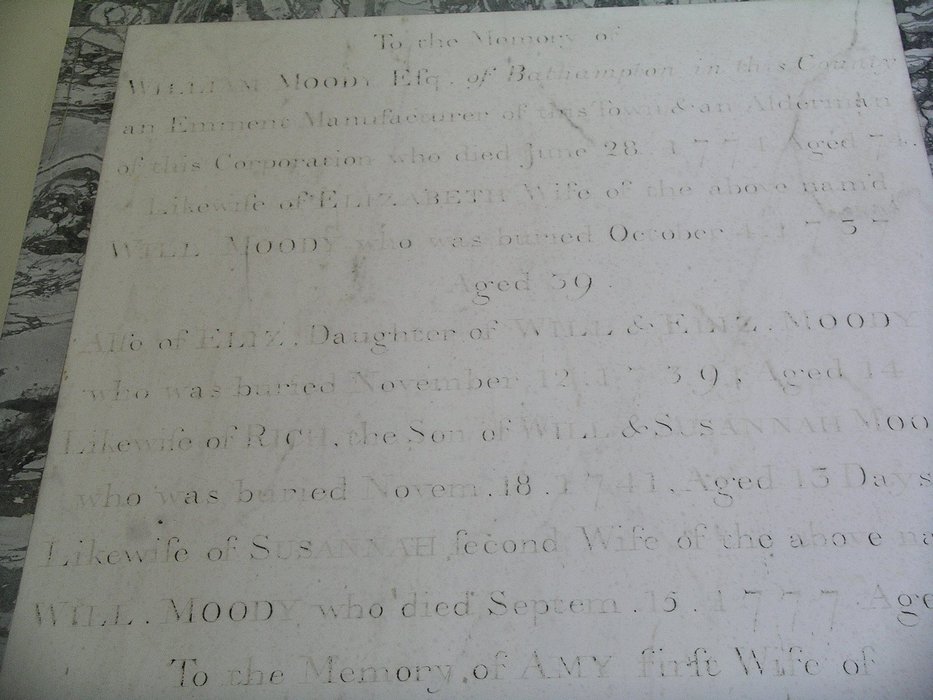 To the Memory of
WILLIAM MOODY Eſq. of Bathampton in this County
an Eminent Manufacturer of this Town & an Alderman
of this Corporation who died June 28. 1771. Aged 74.
Likewiſe of ELIZABETH Wife of the above nam'd
WILL MOODY who was buried October 4. 1737
Aged 39.
Alſo of ELIZ. Daughter of WILL & ELIZ. MOODY
who was buried November 12. 1739. Aged 14
Likewiſe of RICH. the Son of WILL & SUSANNAH MOO
who was buried Novem. 18. 1741. Aged 13 Days
Likewiſe of SUSANNAH ſecond Wife of the above na
WILL. MOODY who died Septem. 15. 1777. Age
To the Memory of AMY firſt Wife of